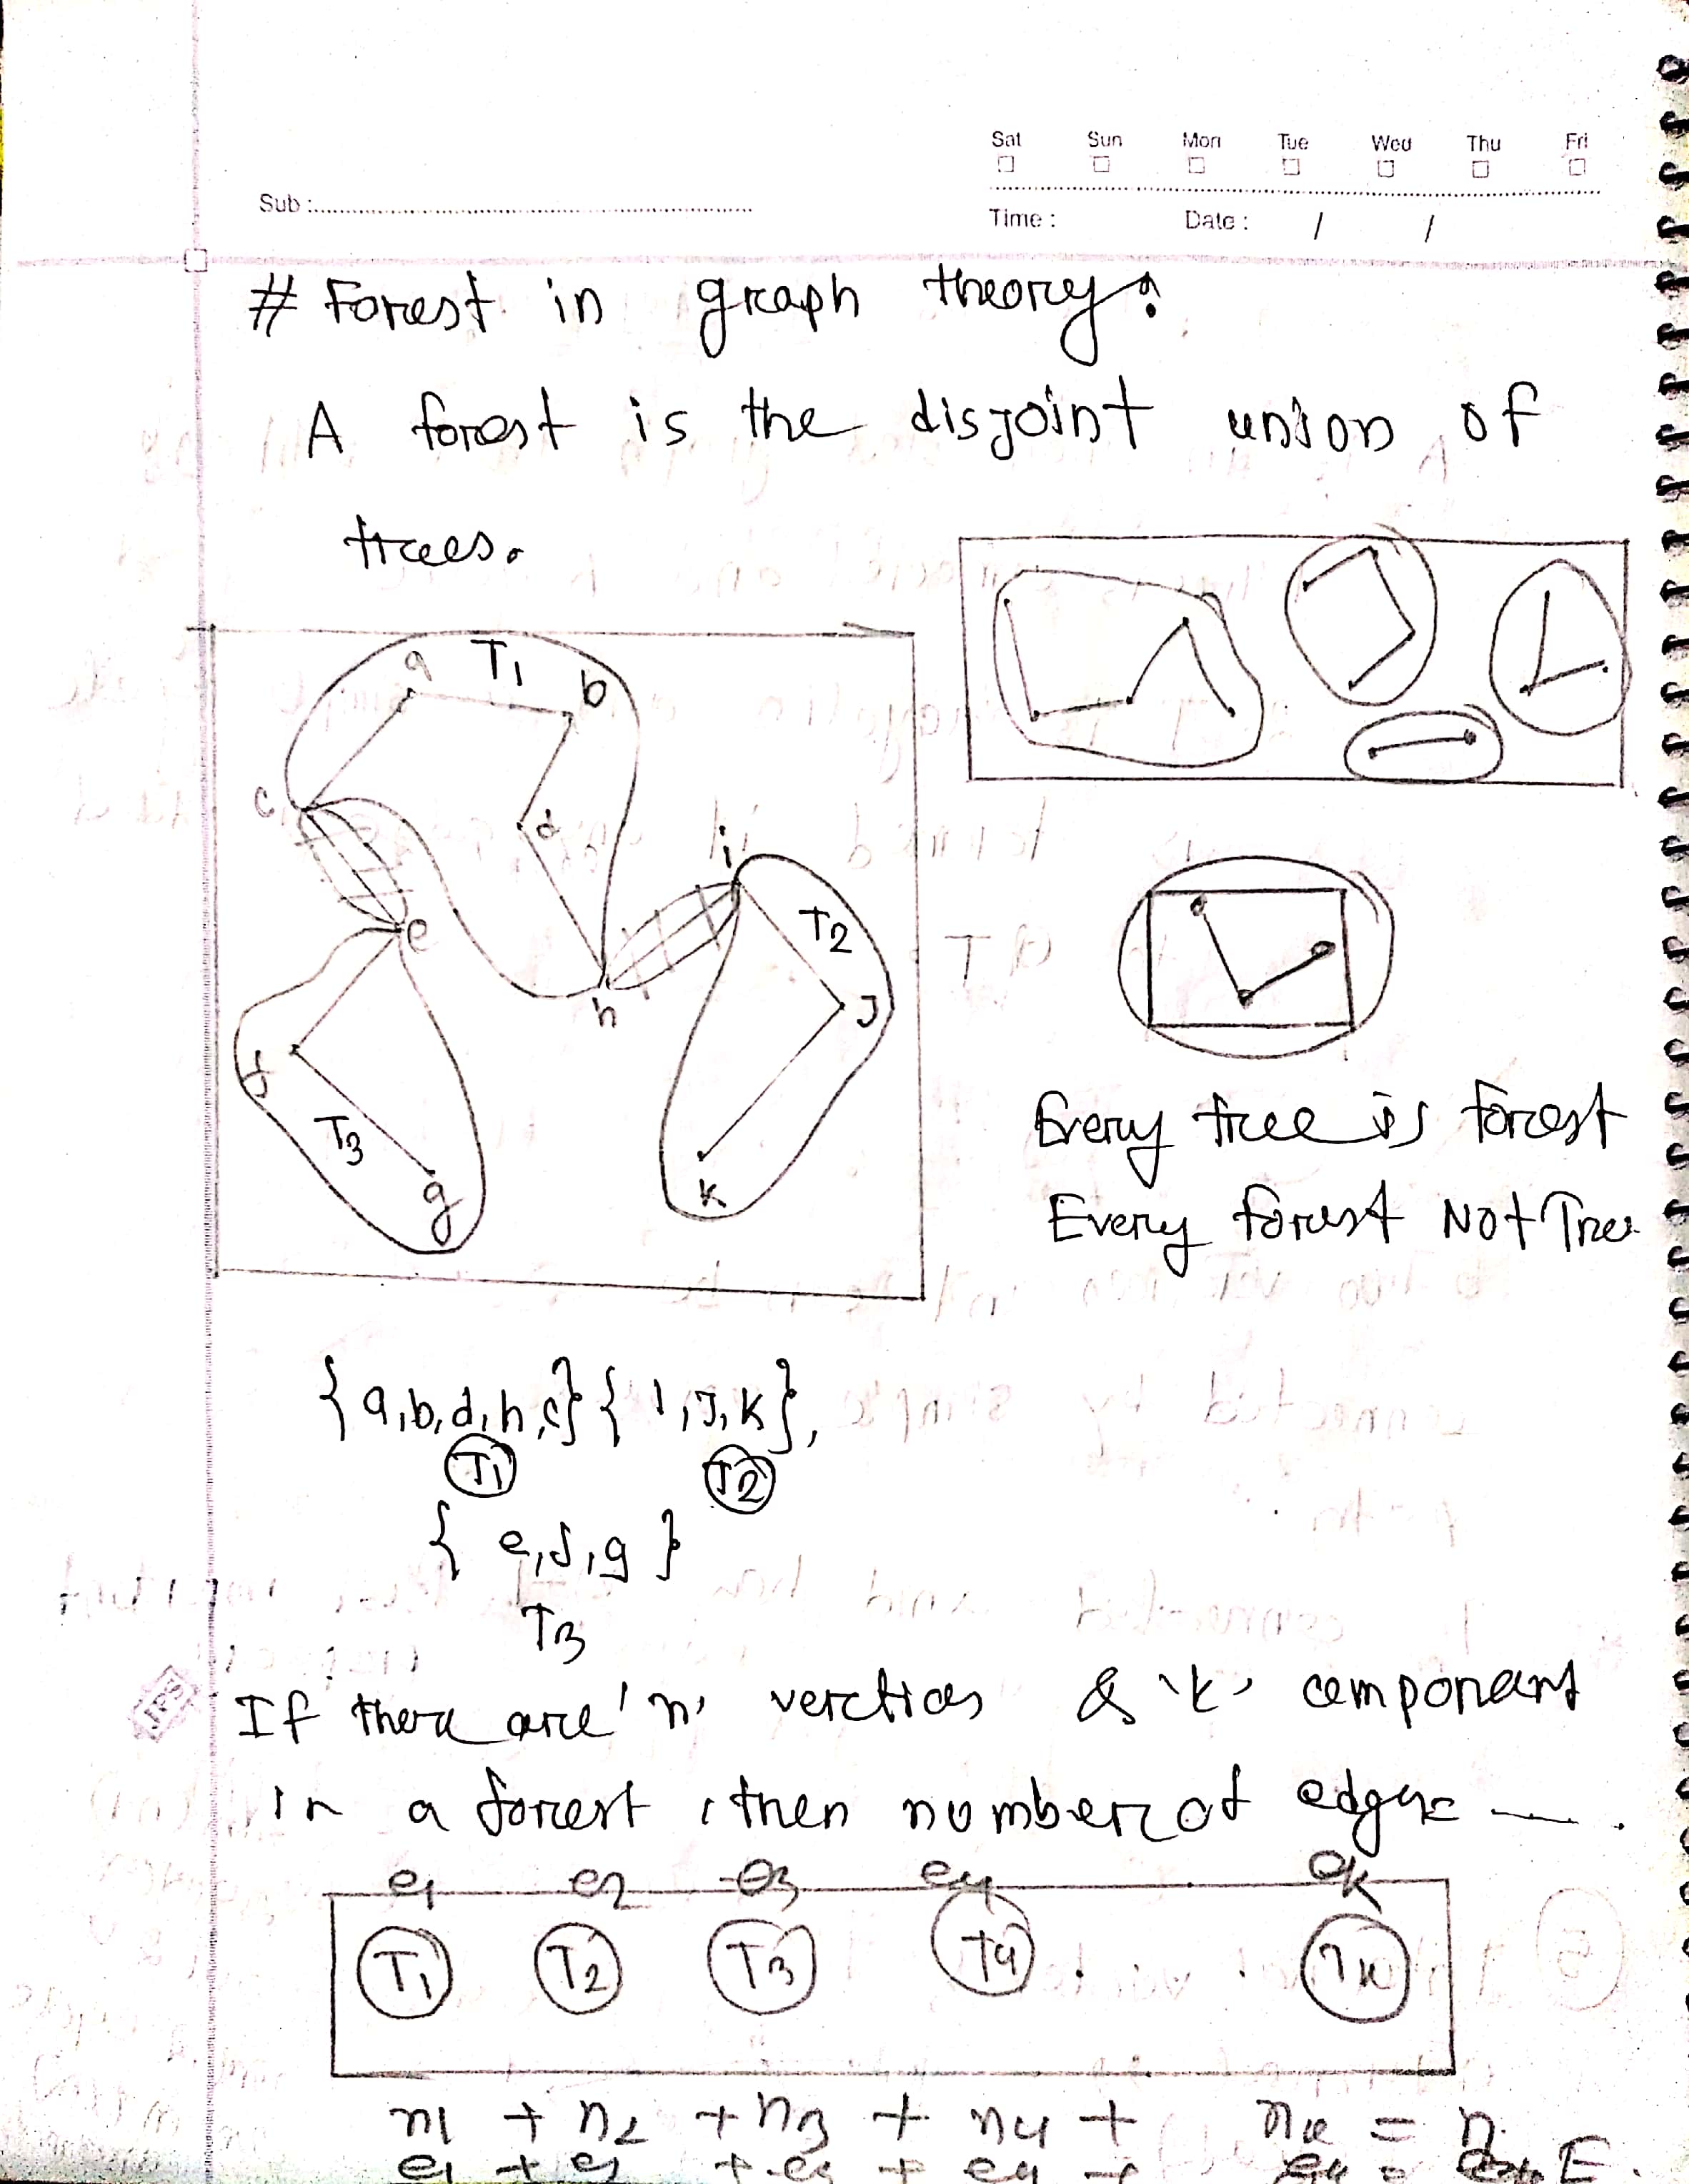 Sat Sun Mon Tue Wed Thu Fri
Sub :
Time : Date : / /
# Forest in graph theory:
A forest is the disjoint union of
trees.
a T1 b
c d
i
e T2
h J
f
T3
g K
Every tree is forest
Every forest Not Tree
{a,b,d,h,c} {i,J,K},
T1 T2
{ e,f,g }
T3
If there are 'n' vertices & 'k' componant
in a forest, then number of edges — .
e1 e2 e3 e4 ek
T1 T2 T3 T4 . . Tk
n1 + n2 + n3 + n4 + nk = n
e1 + e2 + e3 + e4 + ek = E.